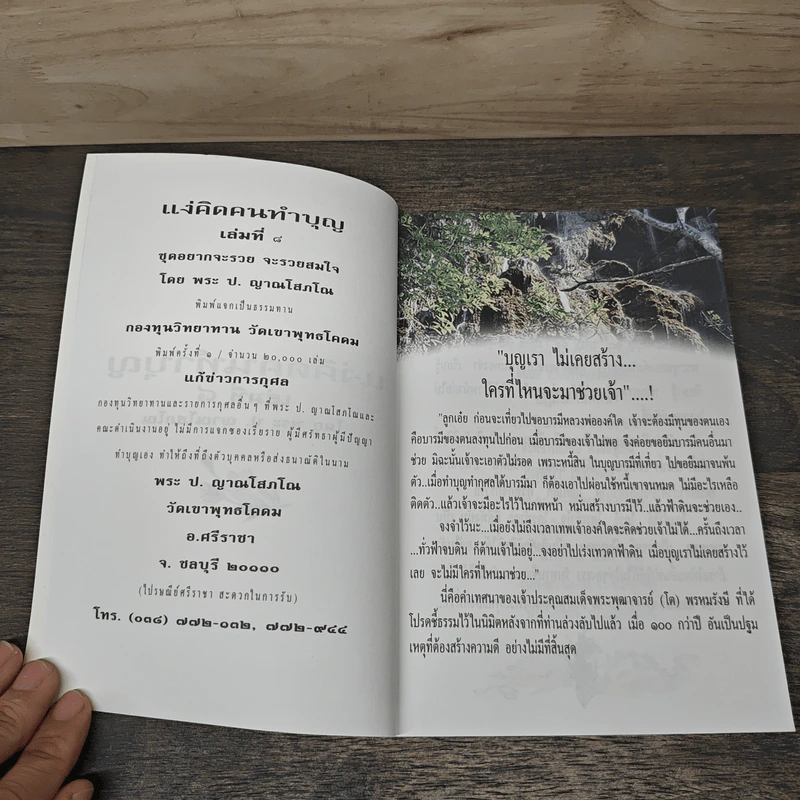 แง่คิดคนทำบุญ
เล่มที่ ๘
ชุดอยากจะรวย จะรวยสมใจ
โดย พระ ป. ญาณโสภโณ
พิมพ์แจกเป็นธรรมทาน
กองทุนวิทยาทาน วัดเขาพุทธโคดม
พิมพ์ครั้งที่ ๑ / จำนวน ๒๐,๐๐๐ เล่ม
แก้ข่าวการกุศล
กองทุนวิทยาทานและรายการกุศลอื่น ๆ ที่พระ ป. ญาณโสภโณและ
คณะดำเนินงานอยู่ ไม่มีการแจกซองเรี่ยราย ผู้มีศรัทธาผู้มีปัญญา
ทำบุญเอง ทำให้ถึงที่ถึงตัวบุคคลหรือส่งธนาณัติในนาม
พระ ป. ญาณโสภโณ
วัดเขาพุทธโคดม
อ.ศรีราชา
จ. ชลบุรี ๒๐๑๑๐
(ไปรษณีย์ศรีราชา สะดวกในการรับ)
โทร. (๐๓๘) ๗๗๒-๐๓๒, ๗๗๒-๙๔๔
"บุญเรา ไม่เคยสร้าง...
ใครที่ไหนจะมาช่วยเจ้า"....!
"ลูกเอ๋ย ก่อนจะเที่ยวไปขอบารมีหลวงพ่อองค์ใด เจ้าจะต้องมีทุนของตนเอง
คือบารมีของตนลงทุนไปก่อน เมื่อบารมีของเจ้าไม่พอ จึงค่อยขอยืมบารมีคนอื่นมา
ช่วย มิฉะนั้นเจ้าจะเอาตัวไม่รอด เพราะหนี้สิน ในบุญบารมีที่เที่ยว ไปขอยืมมาจนพ้น
ตัว..เมื่อทำบุญทำกุศลได้บารมีมา ก็ต้องเอาไปผ่อนใช้หนี้เขาจนหมด ไม่มีอะไรเหลือ
ติดตัว..แล้วเจ้าจะมีอะไรไว้ในภพหน้า หมั่นสร้างบารมีไว้..แล้วฟ้าดินจะช่วยเอง..
จงจำไว้นะ...เมื่อยังไม่ถึงเวลาเทพเจ้าองค์ใดจะคิดช่วยเจ้าไม่ได้...ครั้นถึงเวลา
...ทั่วฟ้าจบดิน ก็ต้านเจ้าไม่อยู่...จงอย่าไปเร่งเทวดาฟ้าดิน เมื่อบุญเราไม่เคยสร้างไว้
เลย จะไม่มีใครที่ไหนมาช่วย..."
นี่คือคำเทศนาของเจ้าประคุณสมเด็จพระพุฒาจารย์ (โต) พรหมรังษี ที่ได้
โปรดชี้ธรรมไว้ในนิมิตหลังจากที่ท่านล่วงลับไปแล้ว เมื่อ ๑๐๐ กว่าปี อันเป็นปฐม
เหตุที่ต้องสร้างความดี อย่างไม่มีที่สิ้นสุด